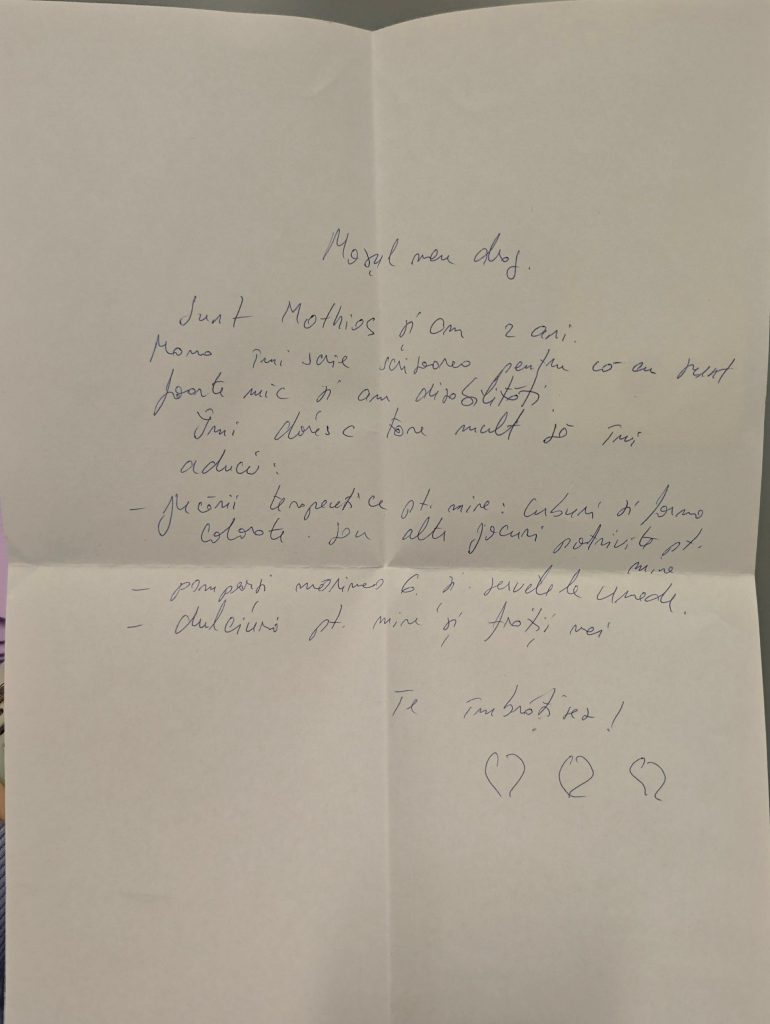 Moșul meu drag.
Sunt Mathias și am 2 ani.
Mama îmi scrie scrisoarea pentru că eu sunt
foarte mic și am dizabilități.
Îmi doresc tare mult să îmi
aduci:
- jucării terapeutice pt. mine: cuburi și forme
colorate. sau alte jocuri potrivite pt.
mine
- pamperși mărimea 6. și servetele umede.
- dulciuri pt. mine și frații mei
Te îmbrățisez!